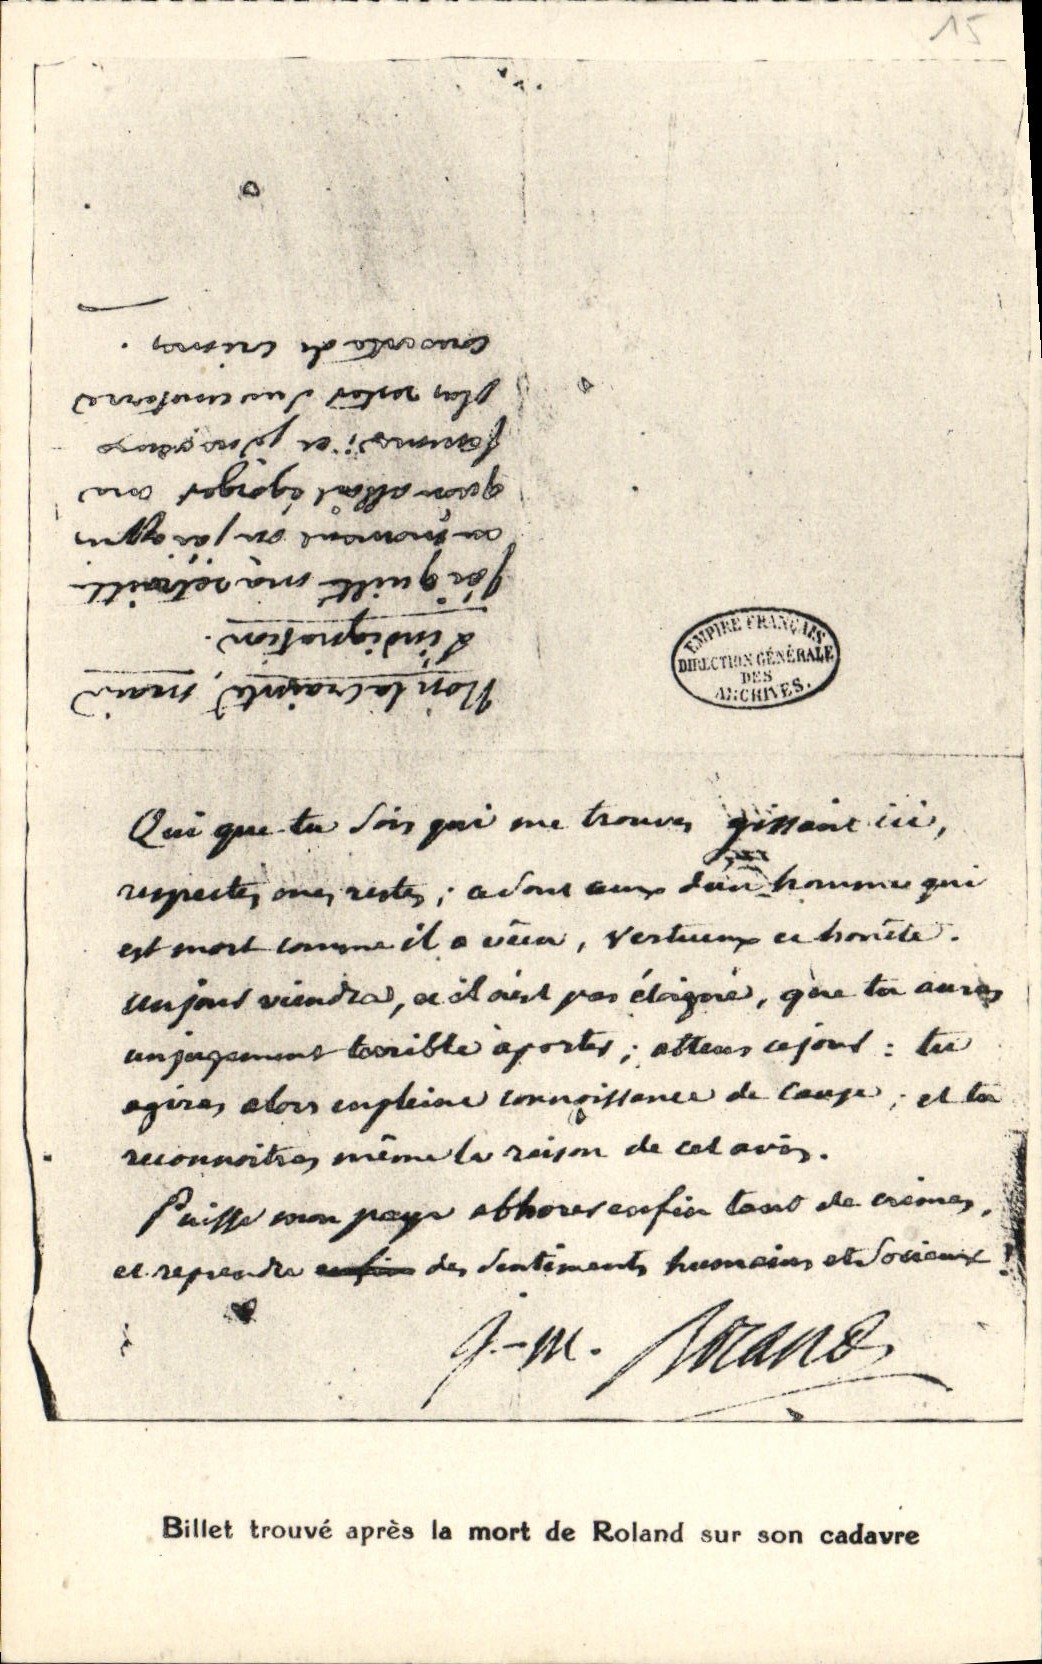 15
Non la crainte, mais
l'indignation.
J'ai quitté ma retraite
au moment où j'ai appris
qu'on allait égorger ma
femme; et je ne veux
plus rester sur une terre
couverte de crimes.
EMPIRE FRANÇAIS
DIRECTION GÉNÉRALE
DES
ARCHIVES.
Qui que tu sois qui me trouves gissant ici,
respectes mes restes; ce sont ceux d'un homme qui
est mort comme il a vécu, vertueux et honête.
un jour viendra, et il n'est pas éloigné, que tu auras
un jugement terrible à porter; attens ce jour: tu
agiras alors en pleine connoissance de cause; et tu
reconnoitras même la raison de cet avis.
Puisse mon pays abhorer enfin tant de crimes,
et reprendre enfin des sentiments humains et sociaux!
J.-M. Roland
Billet trouvé après la mort de Roland sur son cadavre